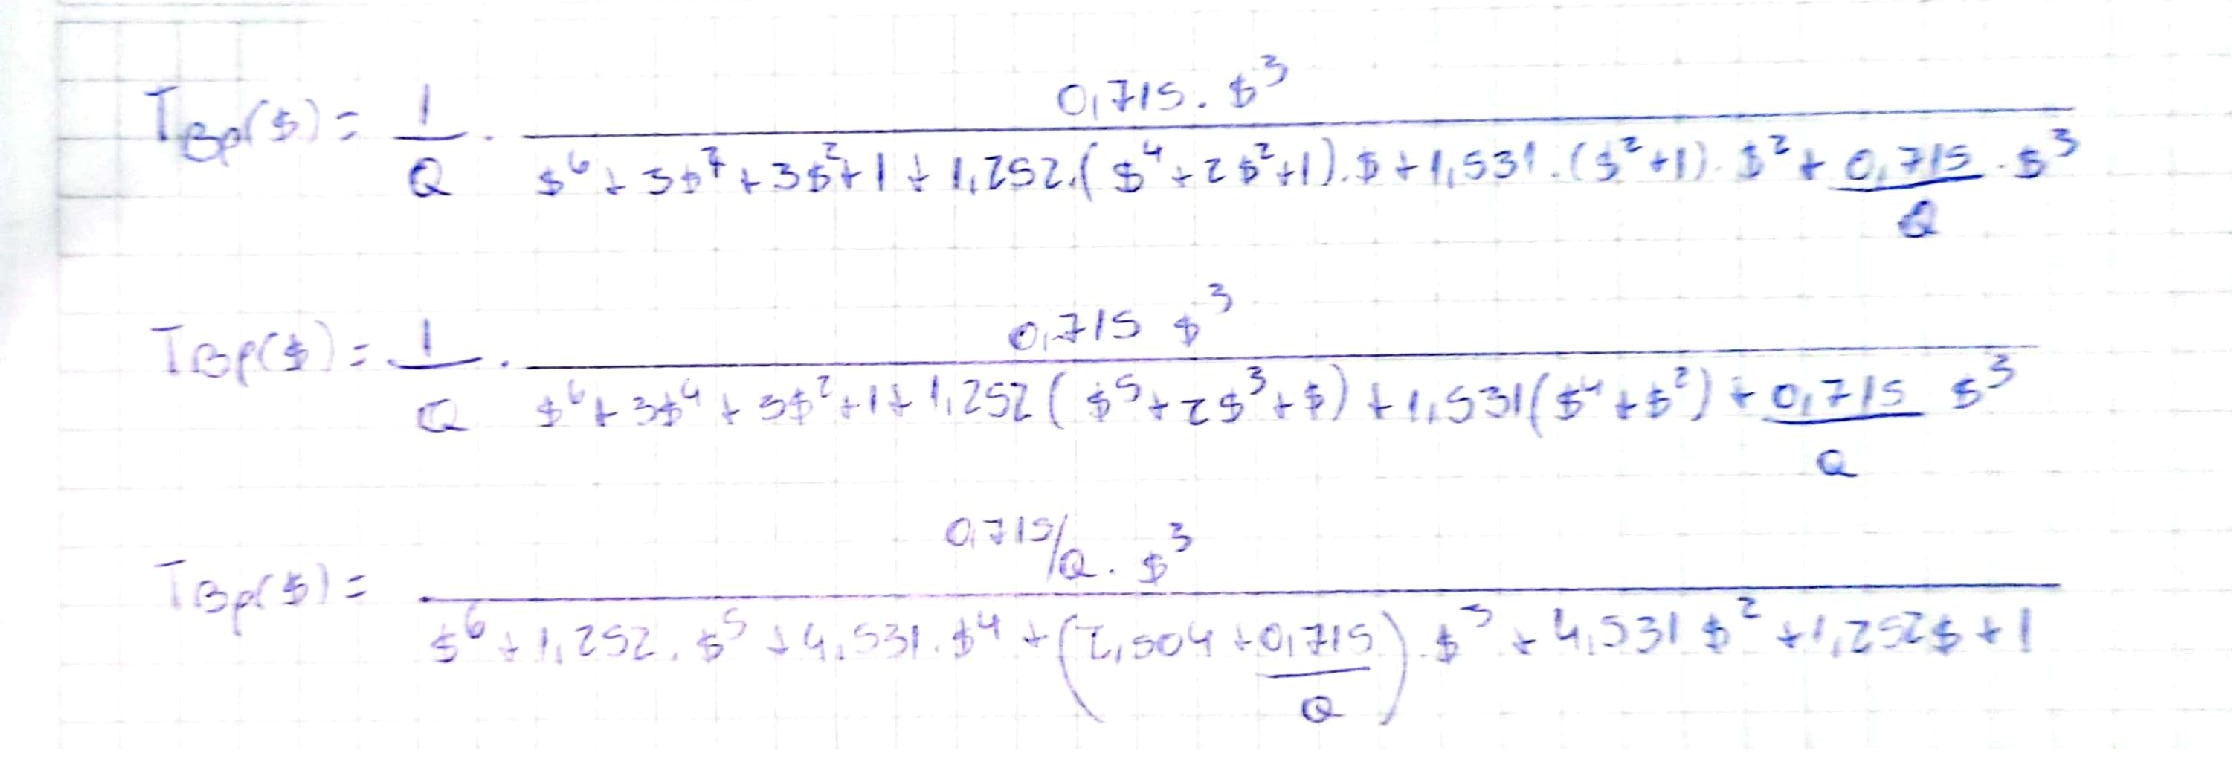 T_BP($) = 1/Q · (0,715 · $^3) / ($^6 + 3$^7 + 3$^2 + 1 + 1,252 · ($^4 + 2$^2 + 1) · $ + 1,531 · ($^2 + 1) · $^2 + 0,715/Q · $^3)
T_BP($) = 1/Q · (0,715 $^3) / ($^6 + 3$^4 + 3$^2 + 1 + 1,252 ($^5 + 2$^3 + $) + 1,531 ($^4 + $^2) + 0,715/Q $^3)
T_BP($) = (0,715/Q · $^3) / ($^6 + 1,252 · $^5 + 4,531 · $^4 + (2,504 + 0,715/Q) · $^3 + 4,531 $^2 + 1,252$ + 1)